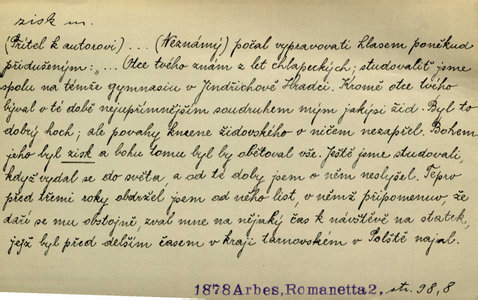 zisk m.
(Přítel k autorovi) ... (Neznámý) počal vypravovati hlasem poněkud
přidušeným: „... Otce tvého znám z let chlapeckých; studovaliť jsme
spolu na témže gymnasiu v Jindřichově Hradci. Kromě otce tvého
býval v té době nejupřímnějším soudruhem mým jakýsi žid. Byl to
dobrý hoch; ale povahy kmene židovského v ničem nezapřel. Bohem
jeho byl zisk a bohu tomu byl by obětoval vše. Ještě jsme studovali,
když vydal se do světa a od té doby jsem o něm neslyšel. Tepro
před třemi roky obdržel jsem od něho list, v němž připomenuv, že
daří se mu obstojně, zval mne na nějaký čas k návštěvě na statek,
jejž byl před delším časem v kraji tarnovském v Polště najal.
1878 Arbes, Romanetta 2, str. 98, 8